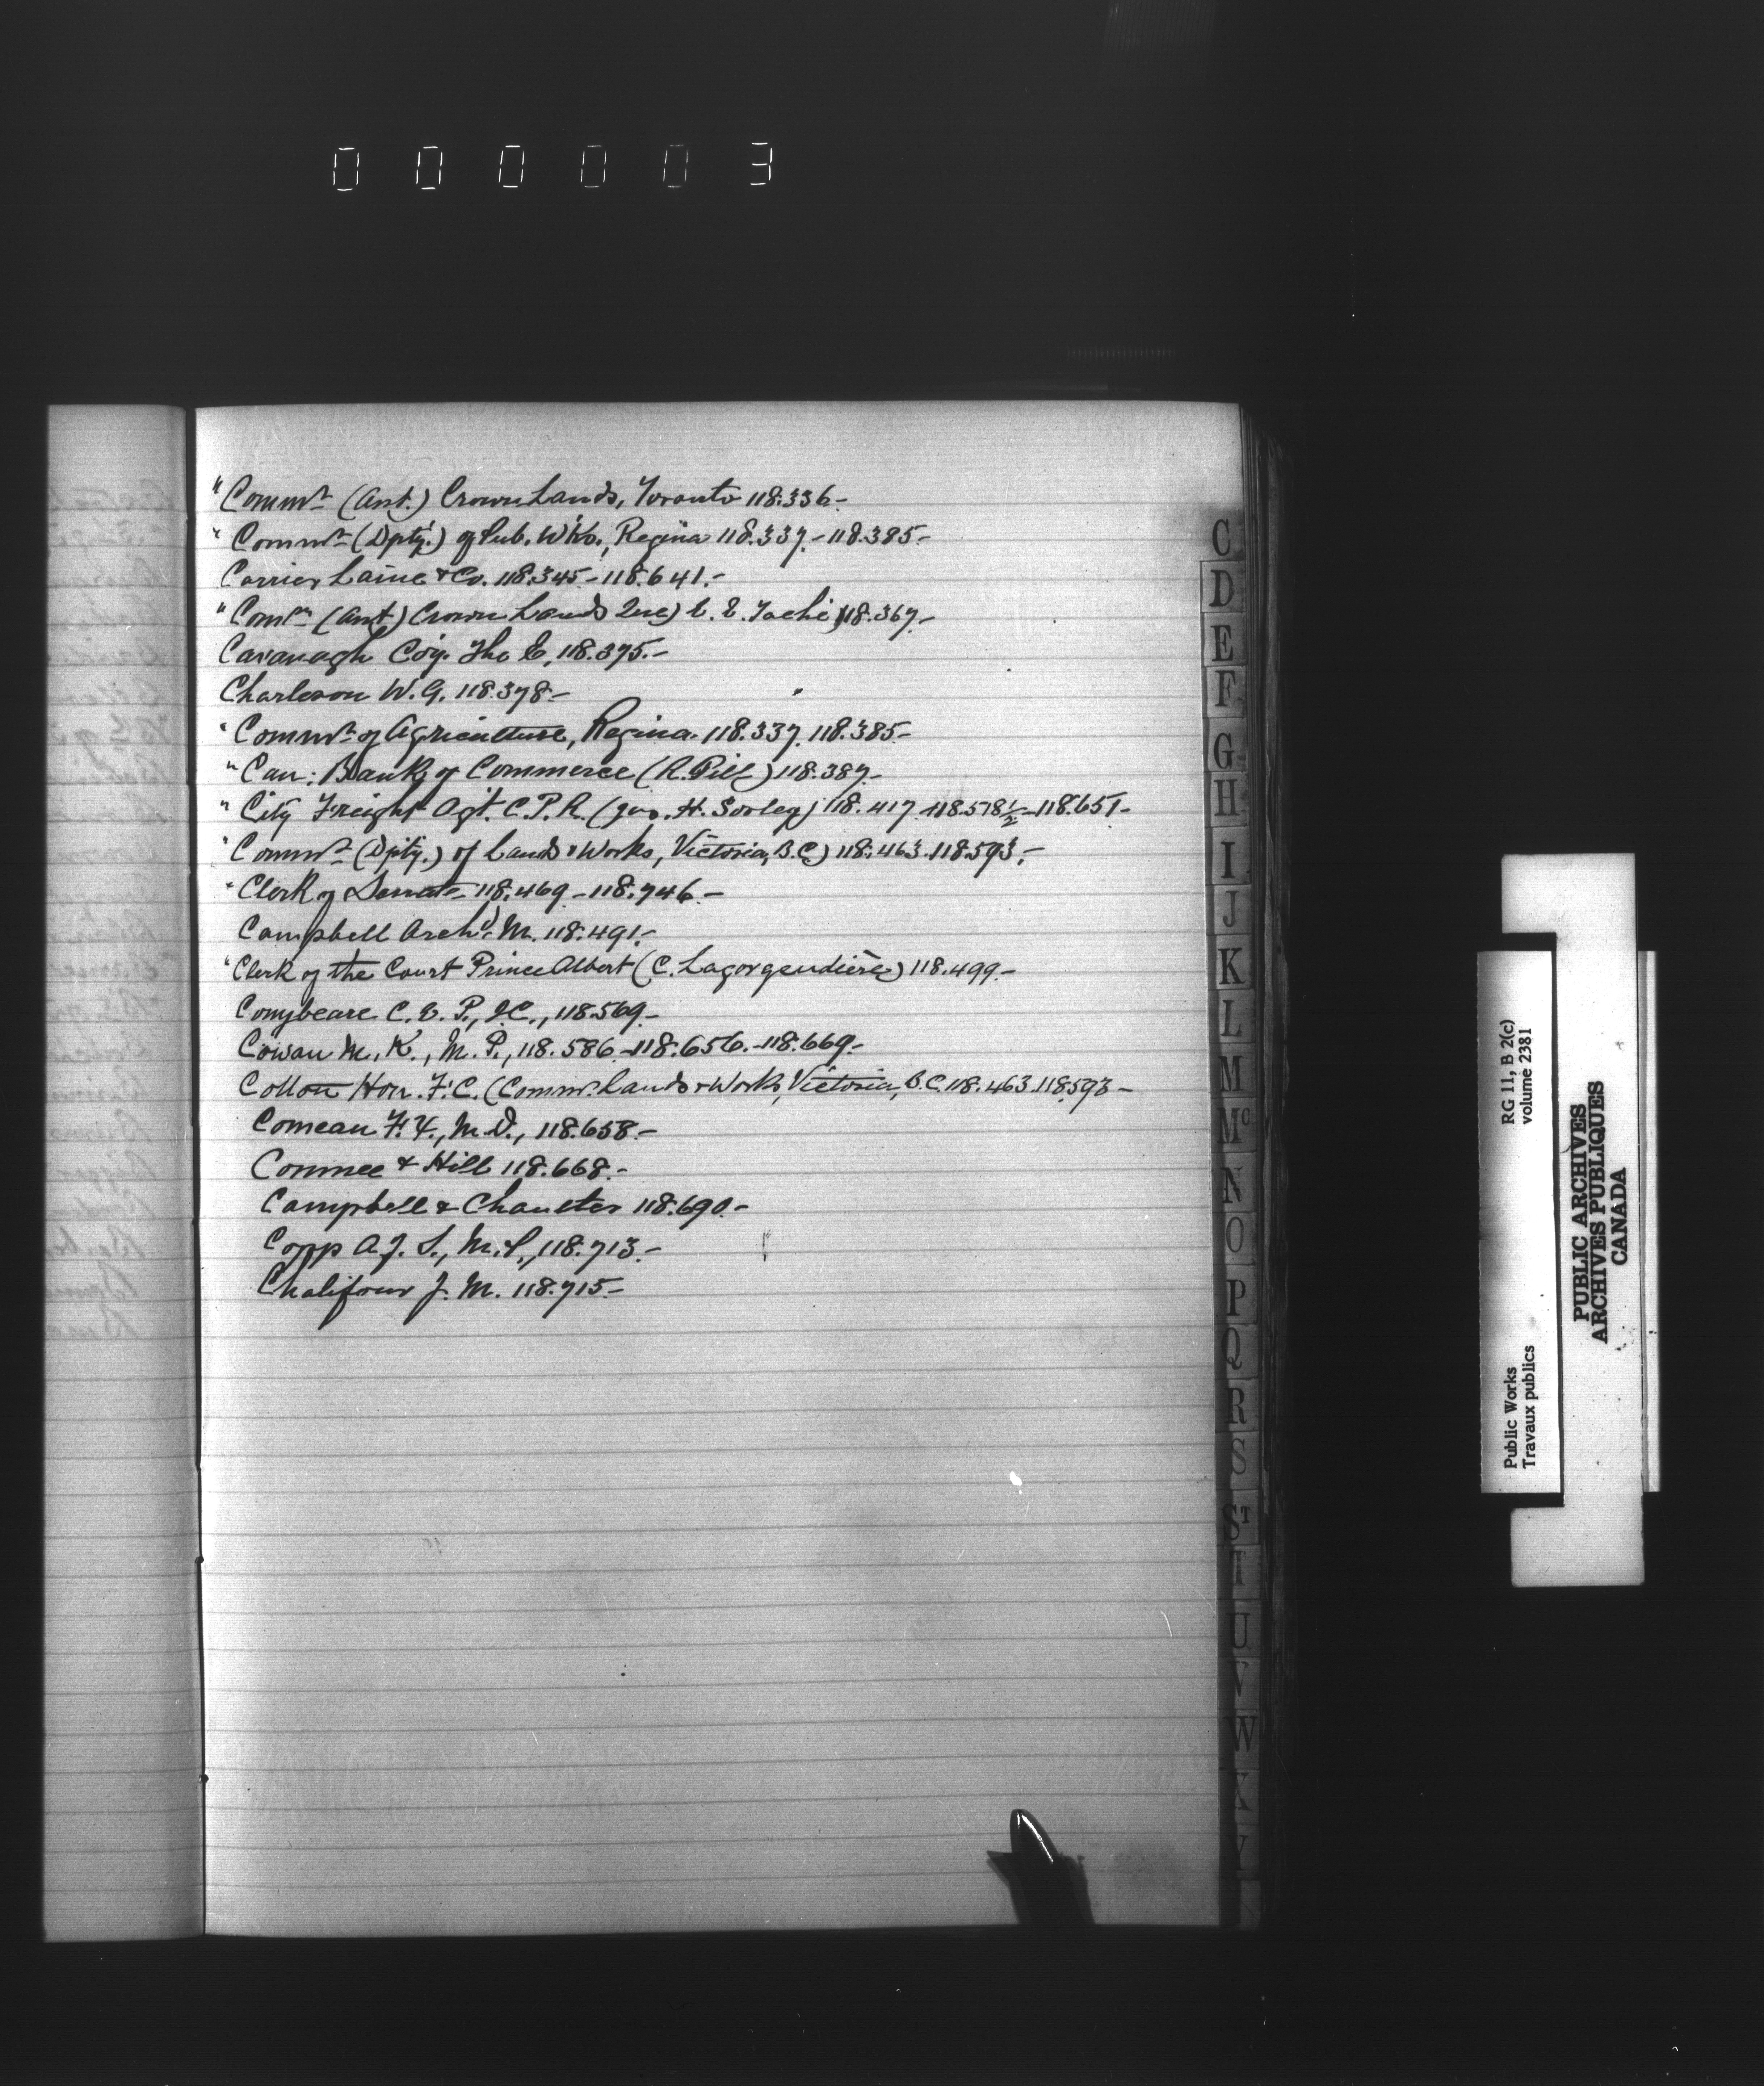 000003
"Commr. (Asst.) Crown Lands, Toronto 118.336.-
" Commr. (Dpty.) of Pub. W'ks., Regina 118.337.-118.385.-
Carrier Laine & Co. 118.345.-118.641.-
"Comr. (Asst.) Crown Lands Que) E. E. Taché 118.367.-
Cavanagh Coy. The E, 118.375.-
Charleson W. G. 118.378.-
"Commr. of Agriculture, Regina. 118.337. 118.385.-
"Can: Bank of Commerce (R. Gill) 118.387.-
" City Freight Agt. C.P.R. (Geo. H. Sorley) 118.417. 118.578½-118.651.-
"Commr. (Dpty.) of Lands & Works, Victoria, B.C.) 118.463. 118.593.-
"Clerk of Senate 118.469.-118.746.-
Campbell Archd. M. 118.491.-
"Clerk of the Court Prince Albert (C. Lagorgendière) 118.499.-
Conybeare C. E. P., Q.C., 118.569.-
Cowan M. K., M. P., 118.586.-118.656.-118.669.-
Cotton Hon. F. C. (Commr. Lands & Works, Victoria, B.C. 118.463. 118.593-
Comeau F. X., M.D., 118.658.-
Conmee & Hill 118.668.-
Campbell & 118.690.-
Copp A. J. S., M.P., 118.713.-
Chalifour J. M. 118.715.-
C
D
E
F
G
H
I
J
K
L
M
Mc
N
O
P
Q
R
S
ST
T
U
V
W
X
Y
Public Works RG 11, B 2(c)
Travaux publics volume 2381
PUBLIC ARCHIVES
ARCHIVES PUBLIQUES
CANADA